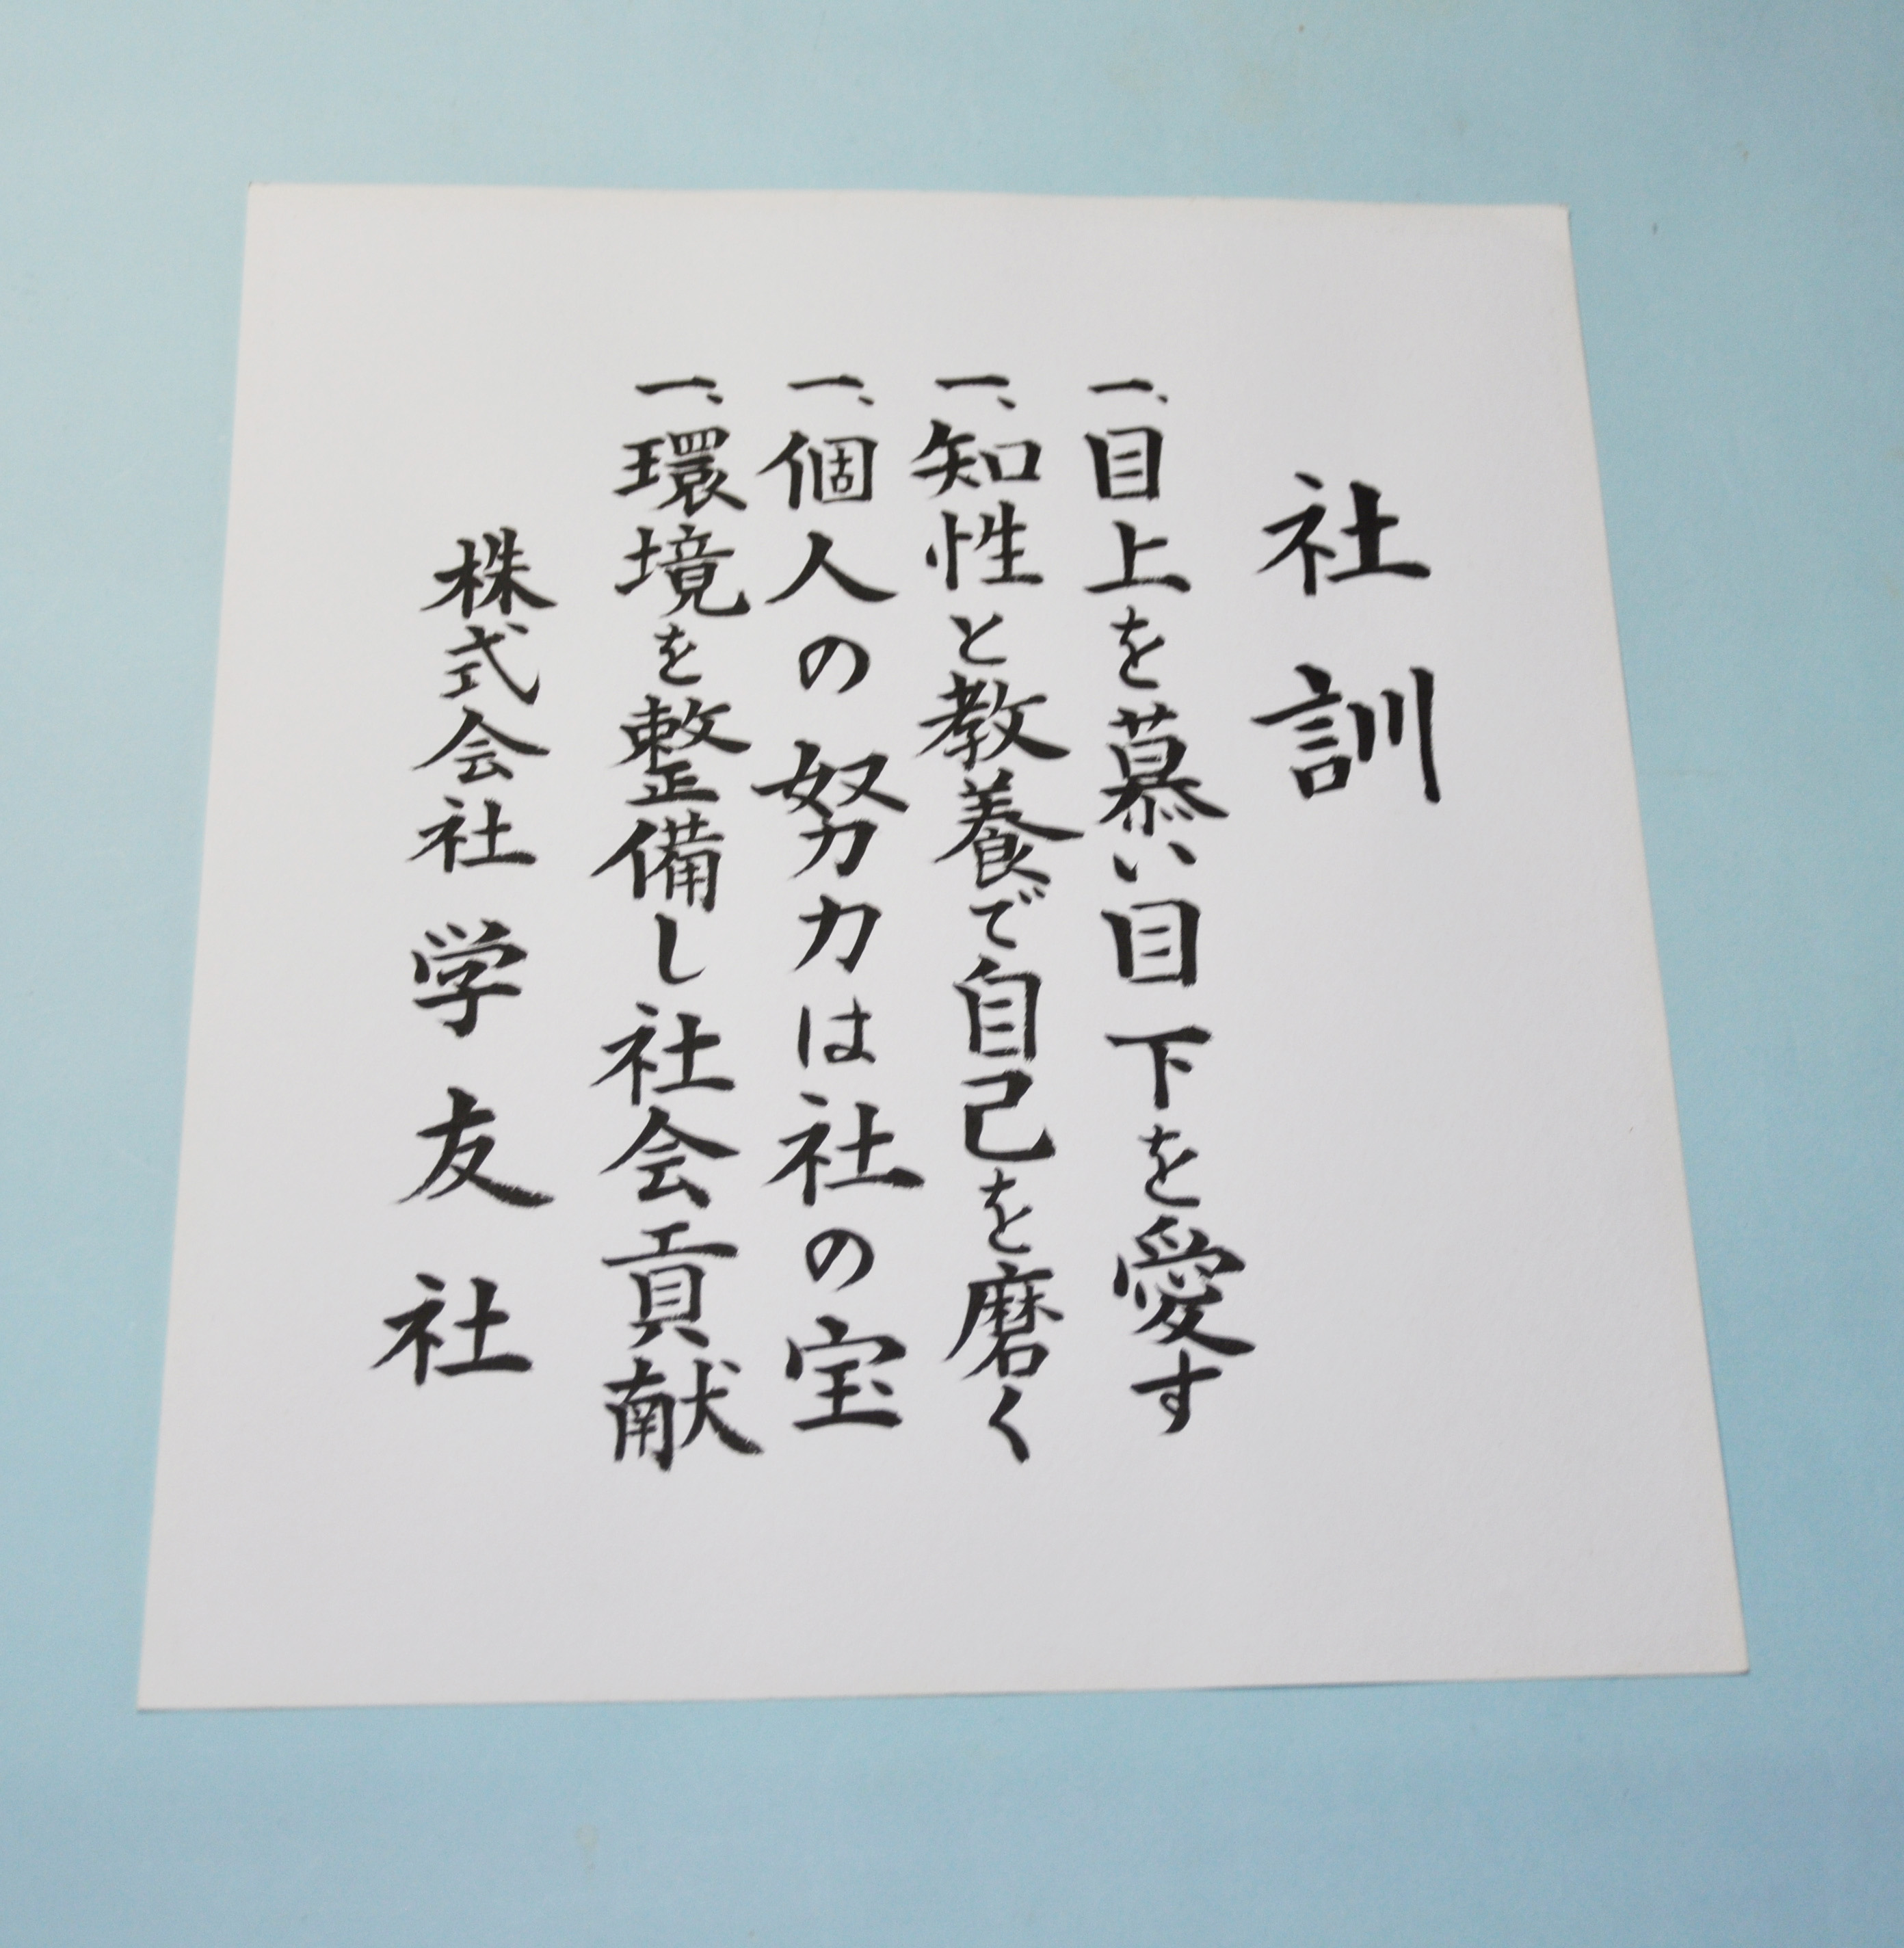 社訓
一、目上を慕い目下を愛す
一、知性と教養で自己を磨く
一、個人の努力は社の宝
一、環境を整備し社会貢献
株式会社学友社